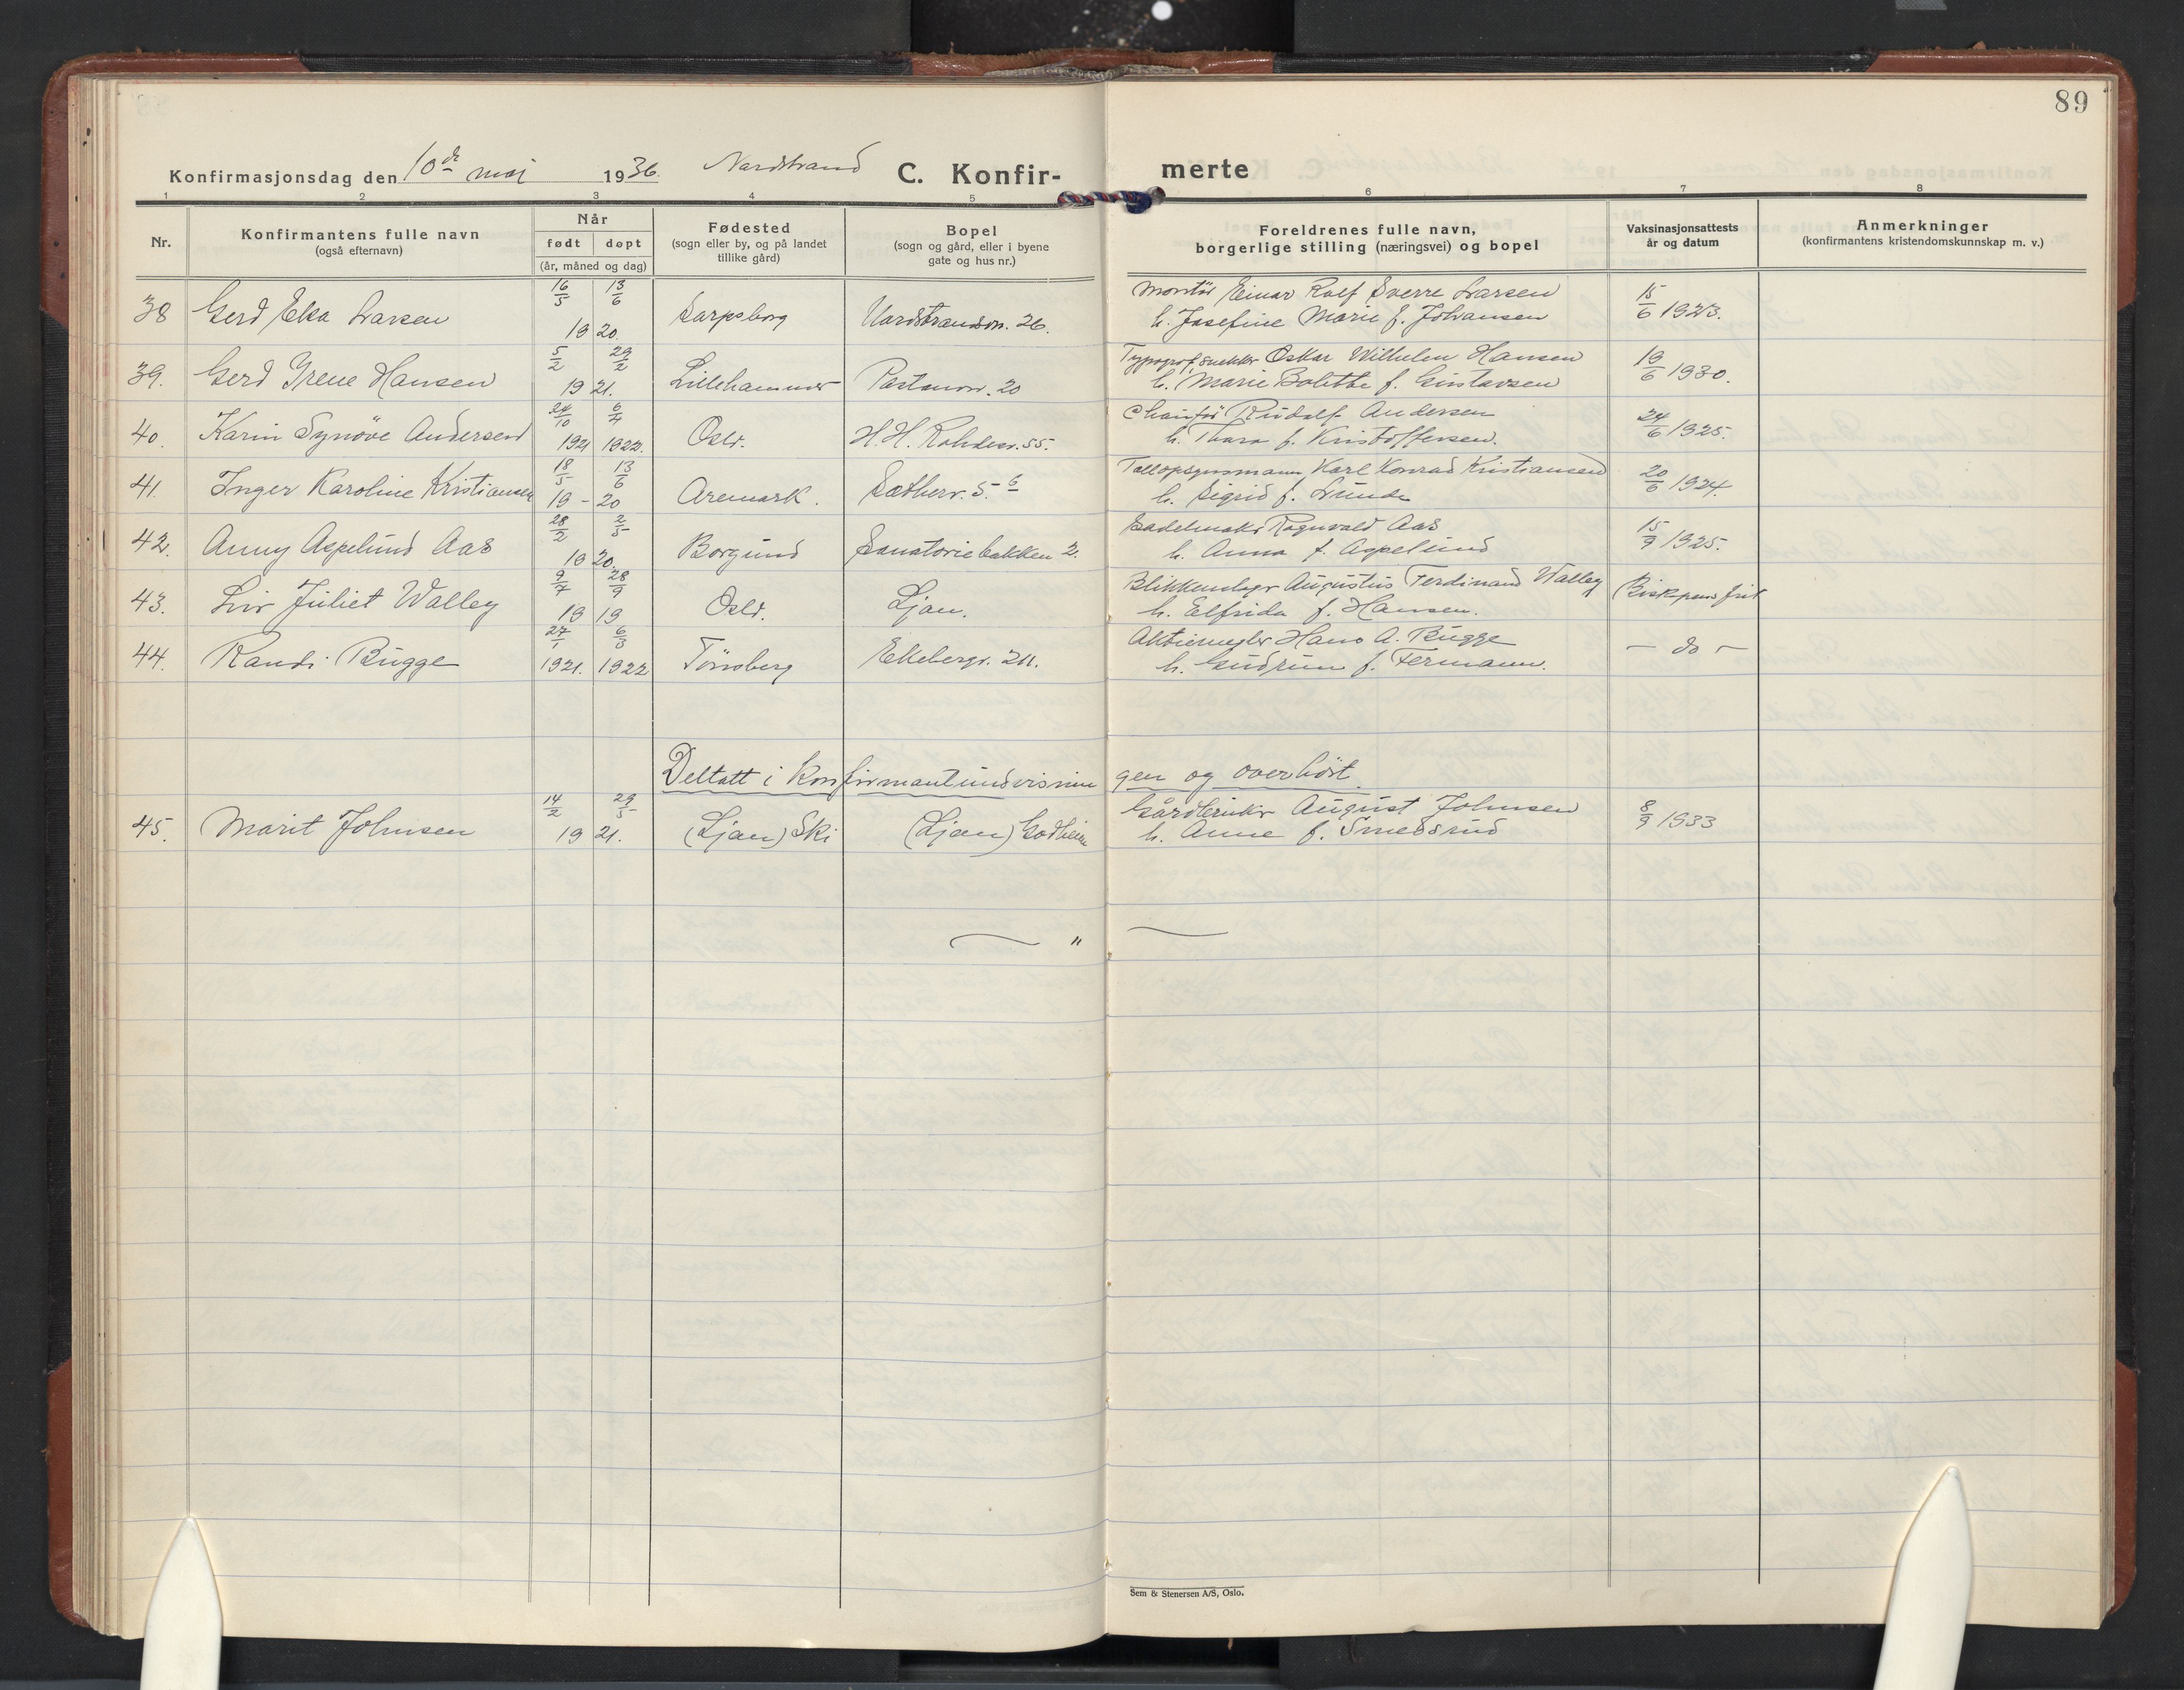 89
Konfirmasjonsdag den 10de mai 1936. Nordstrand C. Konfir- merte
1 2 3 4 5 6 7 8
Nr. Konfirmantens fulle navn (også efternavn) Når født døpt (år, måned og dag) Fødested (sogn eller by, og på landet tillike gård) Bopel (sogn og gård, eller i byene gate og hus nr.) Foreldrenes fulle navn, borgerlige stilling (næringsvei) og bopel Vaksinasjonsattests år og datum Anmerkninger (konfirmantens kristendomskunnskap m. v.)
16/5 13/6 Montør Einar Rolf Sverre Larsen 15/6 1923.
38 Gerd Elsa Larsen 19 20. Sarpsborg Nordstrandsv. 26. h. Josefine Marie f. Johansen
5/2 29/2 Typograf, snekker Oskar Wilhelm Hansen 19/6 1930.
39. Gerd Irene Hansen 19 21. Lillehammer 20 h. Marie Bolette f. Gustavsen
24/10 6/4 Chaufør Rudolf Andersen 24/6 1925.
40. Karin Synøve Andersen 1921 1922. Oslo. H.H. 55. h. Thora f. Kristoffersen.
18/5 13/6 Tallopsynsmann Karl Konrad Kristiansen 20/6 1924.
41. Inger Karoline Kristiansen 19 - 20 Aremark. Sætherv. 5. 6 h. Sigrid f. Lunde
28/2 2/5 Sadelmaker Ragnvald Aas 15/9 1925.
42. Anny Aspelund Aas 19 20. Borgund Sanatoriebakken 2. h. Anna f. Aspelund
9/7 28/9 Blikkenslager Augustus Ferdinand Walley Biskopens frit
43. Liv Juliet Walley 19 19 Oslo. Ljan. h. Elfrida f. Hansen.
27/1 6/3 Aktiemegler Hans A. Bugge - do -
44. Randi Bugge 1921. 1922 Tönsberg Ekebergv. h. Gudrun f. Fermann.
Deltatt i konfirmantundvisnin gen og overhørt.
14/2 29/5 Gårdbruker August Johnsen 8/9 1933
45. Marit Johnsen 19 21. (Ljan) Ski (Ljan) Godheim h. Anne f. Smedsrud
"
Sem & Stenersen A/S, Oslo.